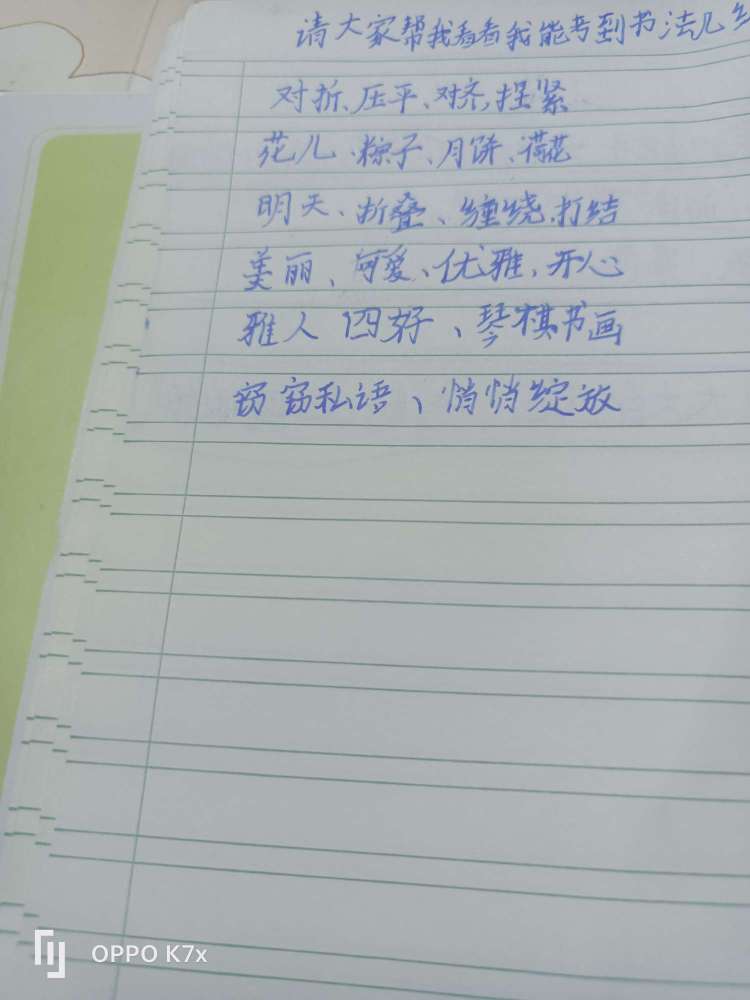 请大家帮我看看我能考到书法几
对折、压平、对齐,捏紧
花儿、粽子、月饼、荷花
明天、折叠、缠绕、打结
美丽、可爱、优雅、开心
雅人四好、琴棋书画
窃窃私语、悄悄绽放
OPPO K7x